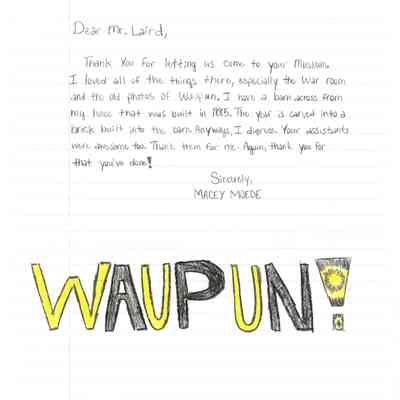 Dear Mr. Laird,
Thank You for letting us come to your Museum.
I loved all of the things there, especially the War room
and the old photos of Waupun. I have a barn across from
my house that was built in 1885. The year is carved into a
brick built into the barn. Anyways, I digress. Your assistants
were awesome too. Thank them for me. Again, thank you for
that you've done!
Sincerely,
MACEY MOEDE
WAUPUN!